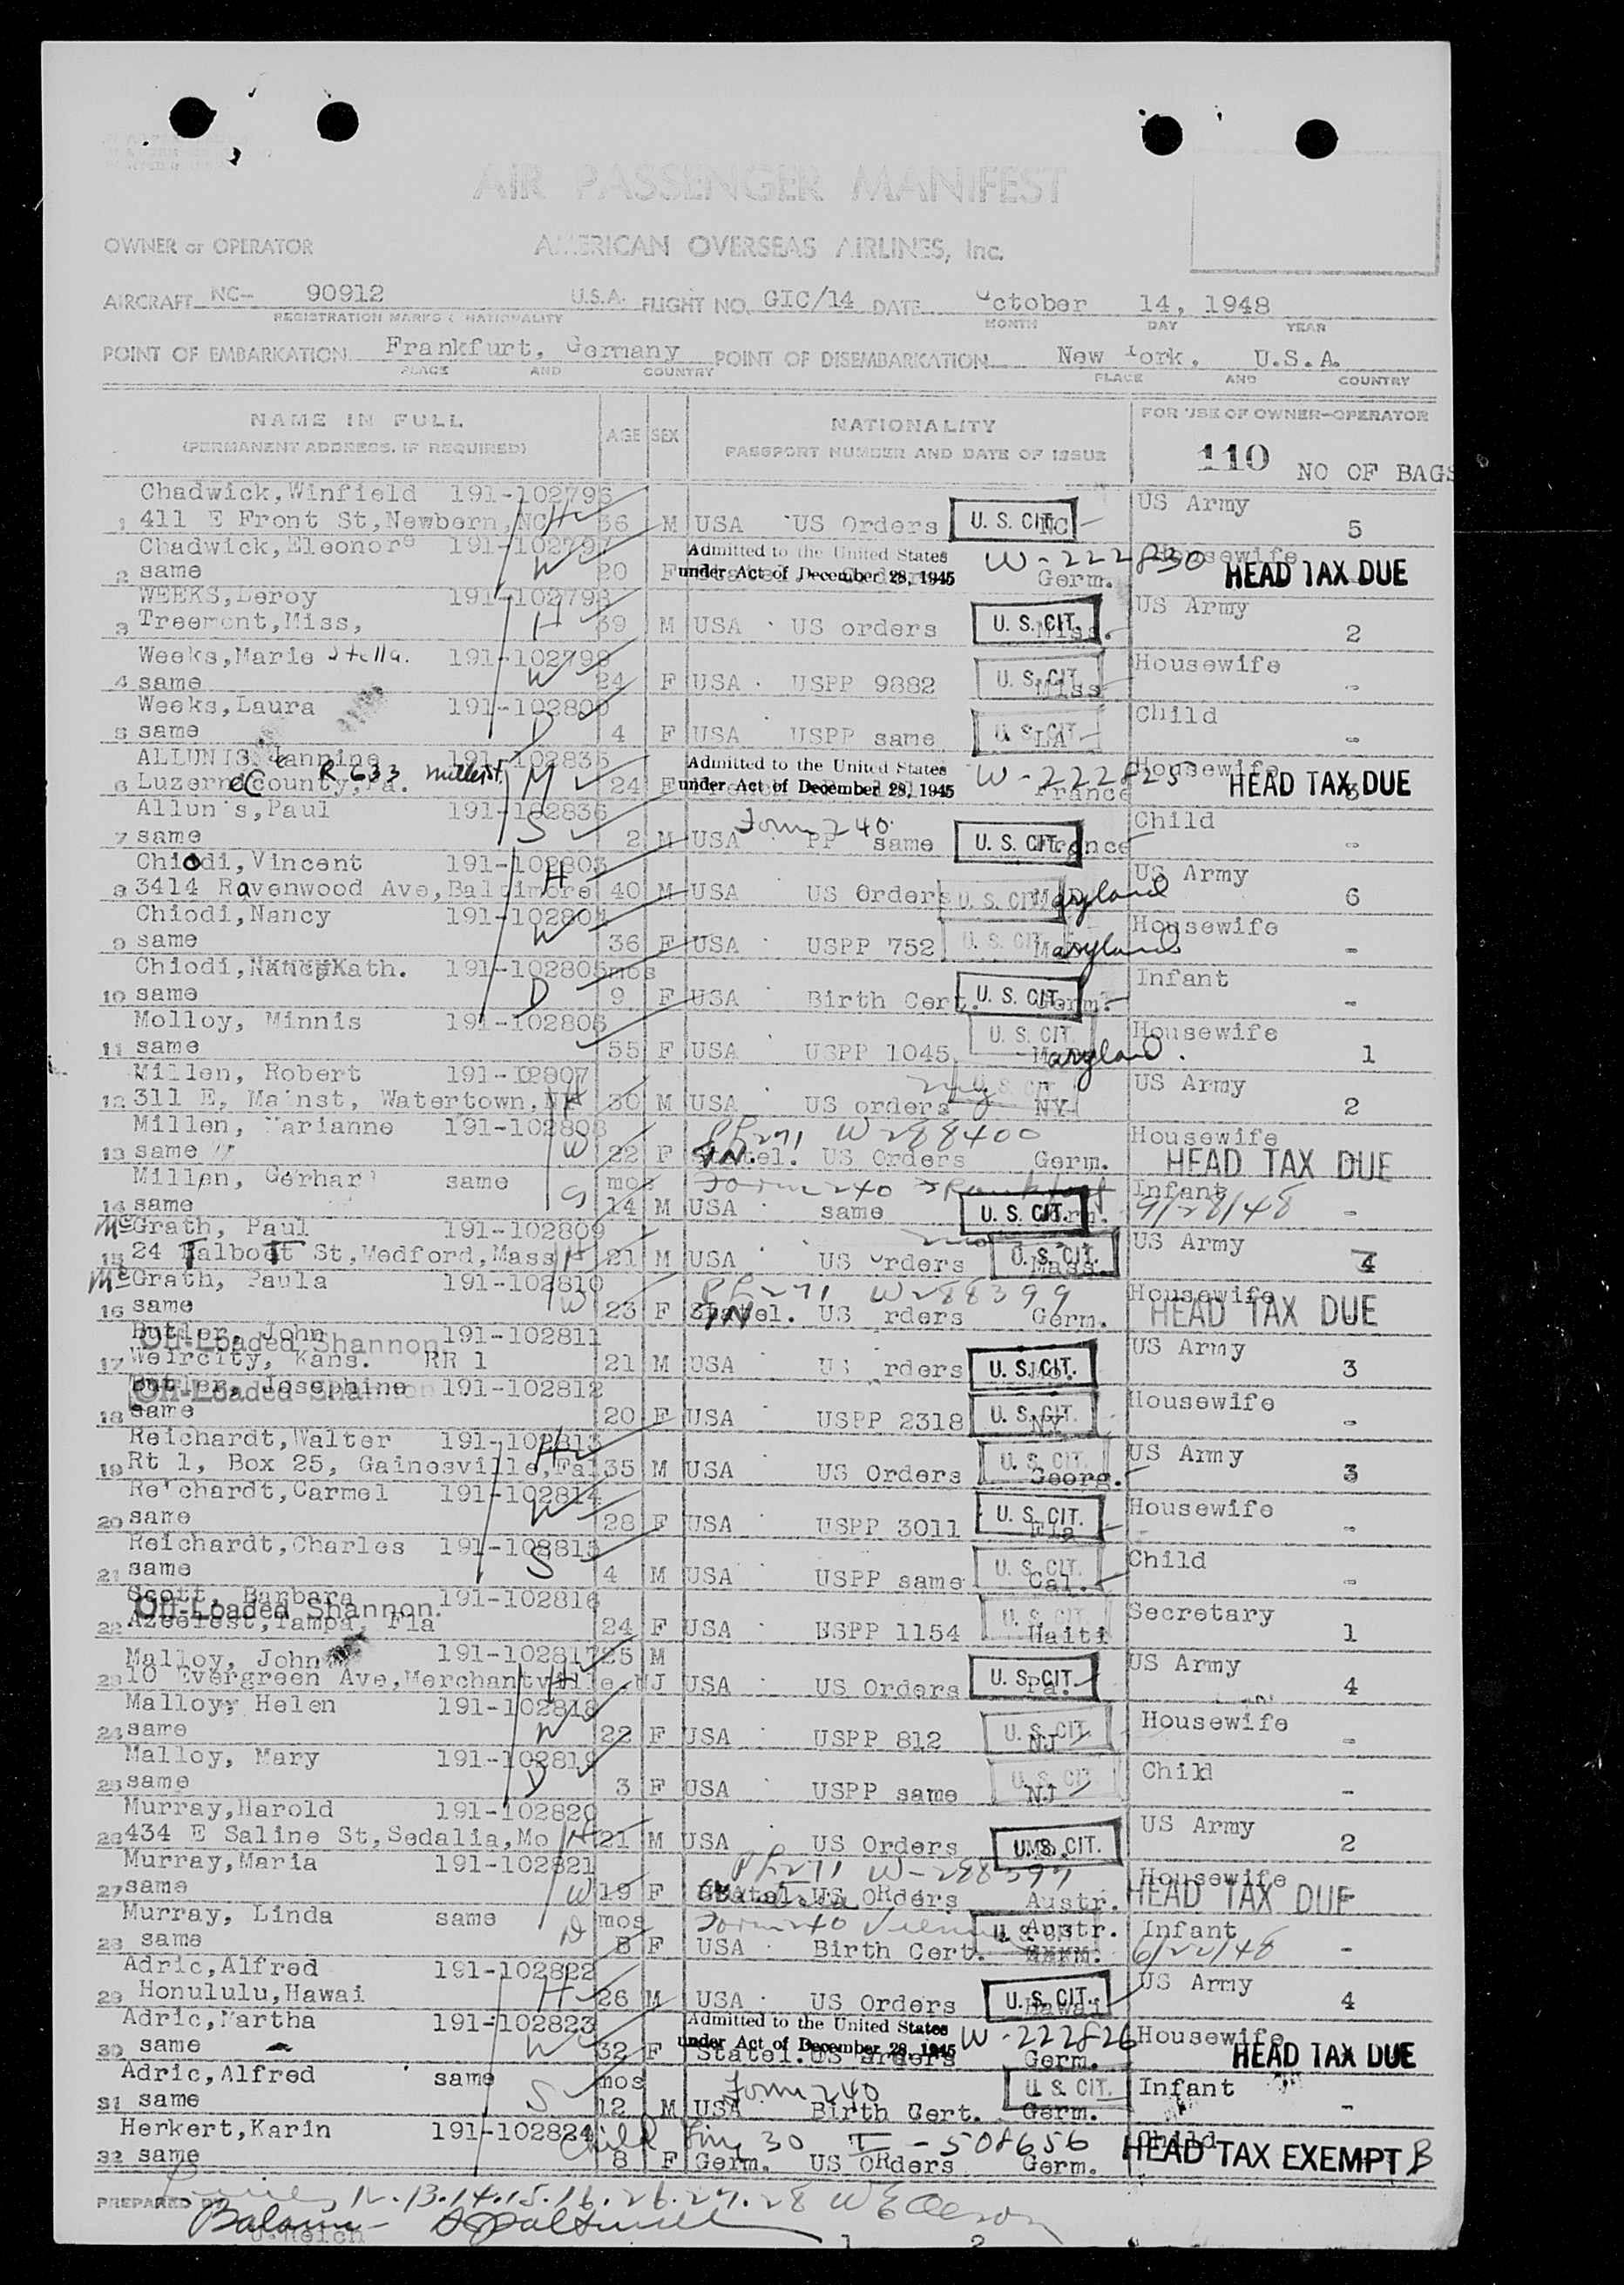 AIR PASSENGER MANIFEST
OWNER or OPERATOR AMERICAN OVERSEAS AIRLINES, Inc.
AIRCRAFT NC- 90912 U.S.A. FLIGHT NO. GIC/14 DATE October 14, 1948
REGISTRATION MARKS & NATIONALITY MONTH DAY YEAR
POINT OF EMBARKATION Frankfurt, Germany POINT OF DISEMBARKATION New York, U.S.A.
PLACE AND COUNTRY PLACE AND COUNTRY
NAME IN FULL AGE SEX NATIONALITY FOR USE OF OWNER-OPERATOR
(PERMANENT ADDRESS, IF REQUIRED) PASSPORT NUMBER AND DATE OF ISSUE 110 NO OF BAGS
Chadwick,Winfield 191-102796 US Army
1 411 E Front St,Newbern,NC H 36 M USA US Orders U. S. CIT. NC 5
Chadwick,Eleonore 191-102797 Admitted to the United States W-222830 Housewife
2 same W 20 F under Act of December 28, 1945 Germ. HEAD TAX DUE
WEEKS,Leroy 191-102798 US Army
3 Treemont,Miss, H 39 M USA US orders U. S. CIT. Miss. 2
Weeks,Marie Stella. 191-102799 Housewife
4 same W 24 F USA USPP 9882 U. S. CIT. Miss -
Weeks,Laura 191-102800 Child
5 same D 4 F USA USPP same U. S. CIT. LA -
ALLUNIS, Jeannine 191-102835 Admitted to the United States Housewife
6 Luzerne County,Pa. R 633 M 24 F under Act of December 28, 1945 France HEAD TAX DUE 3
Allunis,Paul 191-102836 Form 240 Child
7 same S 2 M USA PP same U. S. CIT. France -
Chiodi,Vincent 191-102803 US Army
8 3414 Ravenwood Ave,Baltimore H 40 M USA US Orders U. S. CIT. Maryland 6
Chiodi,Nancy 191-102804 Housewife
9 same W 36 F USA USPP 752 U. S. CIT. Maryland -
Chiodi,Nancy Kath. 191-102805 mos Infant
10 same D 9 F USA Birth Cert. U. S. CIT. Germ. -
Molloy, Minnis 191-102806 U. S. CIT. Housewife
11 same 55 F USA USPP 1045 Maryland. 1
Millen, Robert 191-102807 U. S. CIT. US Army
12 311 E, Mainst, Watertown,NY H 30 M USA US orders NY 2
Millen, Marianne 191-102808 PL271 W288400 Housewife
13 same W 22 F Statel. US Orders Germ. HEAD TAX DUE
Millen, Gerhar same mos Form 240 Frankfurt Infant
14 same S 14 M USA same U. S. CIT. Germ. 9/28/48 -
McGrath, Paul 191-102809 US Army
15 24 Talbott St,Medford,Mass H 21 M USA US Orders U. S. CIT. Mass. 4
McGrath, Paula 191-102810 PL271 W288399 Housewife
16 same W 23 F Statel. US Orders Germ. HEAD TAX DUE
Butler, John 191-102811 US Army
Off-Loaded Shannon
17 Weircity, Kans. RR 1 21 M USA US Orders U. S. CIT. 3
Butler, Josephine 191-102812 Housewife
Off-Loaded Shannon
18 same 20 F USA USPP 2318 U. S. CIT. NY -
Reichardt,Walter 191-102813 US Army
19 Rt 1, Box 25, Gainesville,Fa H 35 M USA US Orders U. S. CIT. Georg. 3
Reichardt,Carmel 191-102814 Housewife
20 same W 28 F USA USPP 3011 U. S. CIT. Fla -
Reichardt,Charles 191-102815 Child
21 same S 4 M USA USPP same U. S. CIT. Cal. -
Scott, Barbara 191-102816 Secretary
Off-Loaded Shannon.
22 Tampa, Fla 24 F USA USPP 1154 U. S. CIT. Haiti 1
Malloy, John 191-102817 25 M US Army
23 10 Evergreen Ave,Merchantville,NJ H USA US Orders U. S. CIT. Pa. 4
Malloy, Helen 191-102818 Housewife
24 same W 22 F USA USPP 812 U. S. CIT. NJ -
Malloy, Mary 191-102819 Child
25 same D 3 F USA USPP same U. S. CIT. NJ -
Murray,Harold 191-102820 US Army
26 434 E Saline St,Sedalia,Mo H 21 M USA US Orders U. S. CIT. 2
Murray,Maria 191-102821 PL271 W-288397 Housewife
27 same W 19 F Statel.US Orders Austr. HEAD TAX DUE
Murray, Linda same mos Form 240 Vienna Austr. Infant
28 same D 8 F USA Birth Cert. U. S. CIT. 6/22/48 -
Adric,Alfred 191-102822 US Army
29 Honululu,Hawai H 26 M USA US Orders U. S. CIT. Hawaii 4
Adric,Martha 191-102823 Admitted to the United States W-222826 Housewife
30 same W 32 F under Act of December 28, 1945 Statel.US Orders Germ. HEAD TAX DUE
Adric,Alfred same mos Form 240 U. S. CIT. Infant
31 same S 12 M USA Birth Cert. Germ. -
Herkert,Karin 191-102824 Child 30 T-508656 Child
32 same 8 F Germ. US ORders Germ. HEAD TAX EXEMPT B
Lines 12.13.14.15.16.26.27.28
PREPARED BY
Balance
1 2